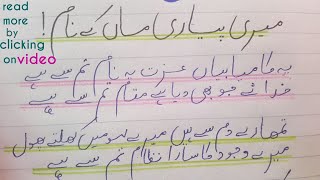 read
more
by
clicking
on video
میری پیاری ماں کے نام!
یہ کامیابیاں عزت یہ نام تم سے ہے
خدا نے جو بھی دیا ہے مقام تم سے ہے
تمھارے دم سے ہیں میرے لہو میں کھلتے پھول
میرے وجود کا سارا نظام تم سے ہے